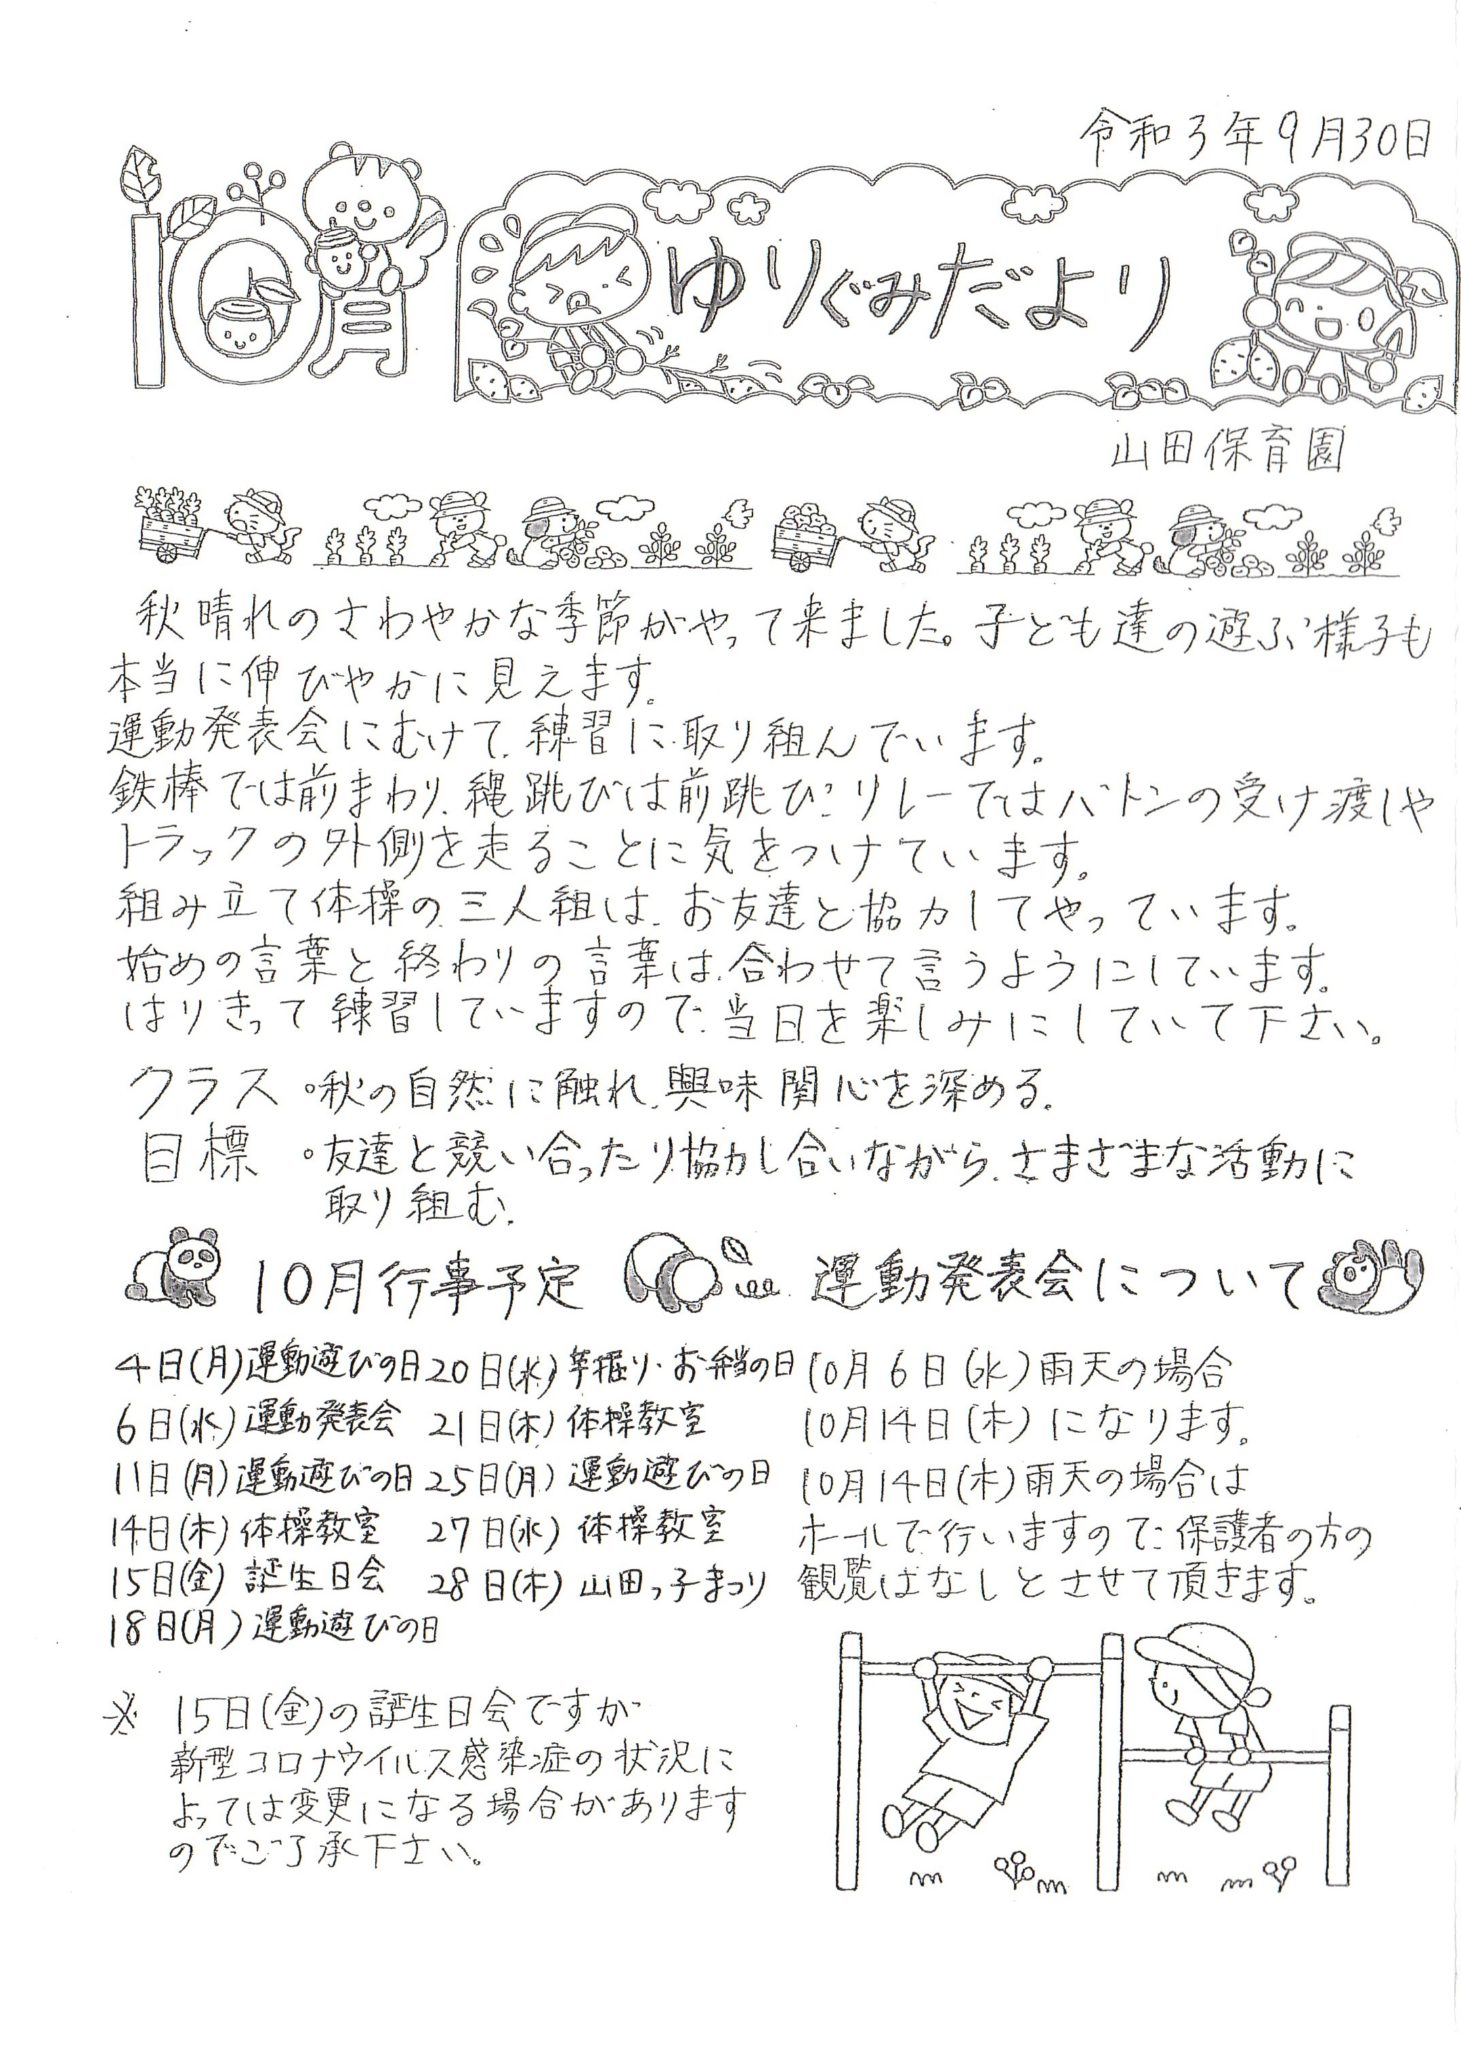 令和3年9月30日
10月
ゆりぐみだより
山田保育園
秋晴れのさわやかな季節がやって来ました。子ども達の遊ぶ様子も
本当に伸びやかに見えます。
運動発表会にむけて、練習に取り組んでいます。
鉄棒では前まわり、縄跳びは前跳び、リレーではバトンの受け渡しや
トラックの外側を走ることに気をつけています。
組み立て体操の三人組は、お友達と協力してやっています。
始めの言葉と終わりの言葉は、合わせて言うようにしています。
はりきって練習していますので、当日を楽しみにしていて下さい。
クラス ・秋の自然に触れ、興味関心を深める。
目標 ・友達と競い合ったり協力し合いながら、さまざまな活動に
取り組む。
10月行事予定
4日(月)運動遊びの日
6日(水)運動発表会
11日(月)運動遊びの日
14日(木)体操教室
15日(金)誕生日会
18日(月)運動遊びの日
20日(水)芋掘り・お弁当の日
21日(木)体操教室
25日(月)運動遊びの日
27日(水)体操教室
28日(木)山田っ子まつり
※ 15日(金)の誕生日会ですが
新型コロナウイルス感染症の状況に
よっては変更になる場合があります
のでご了承下さい。
運動発表会について
10月6日(水)雨天の場合
10月14日(木)になります。
10月14日(木)雨天の場合は
ホールで行いますので、保護者の方の
観覧はなしとさせて頂きます。